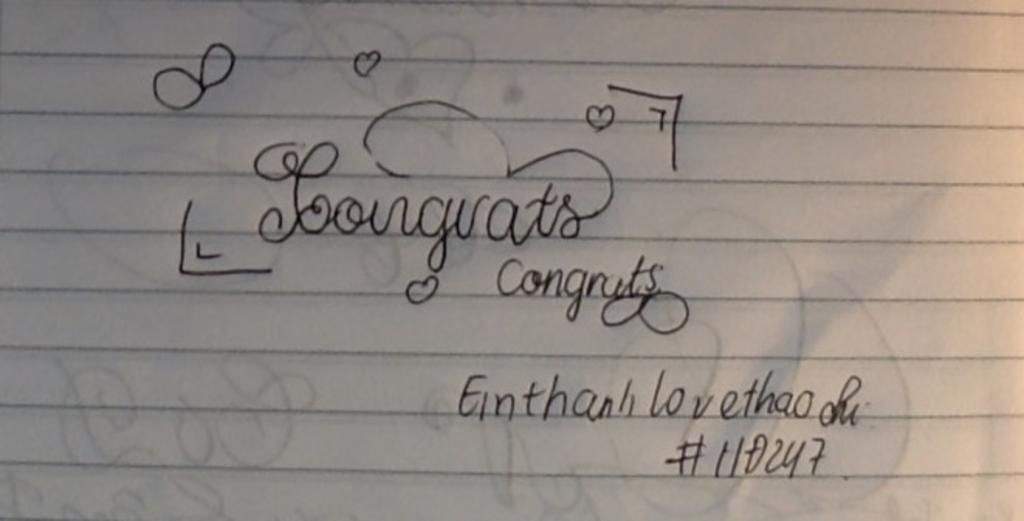 Congrats
Congrats
Einthanh lovethao chi
#110247